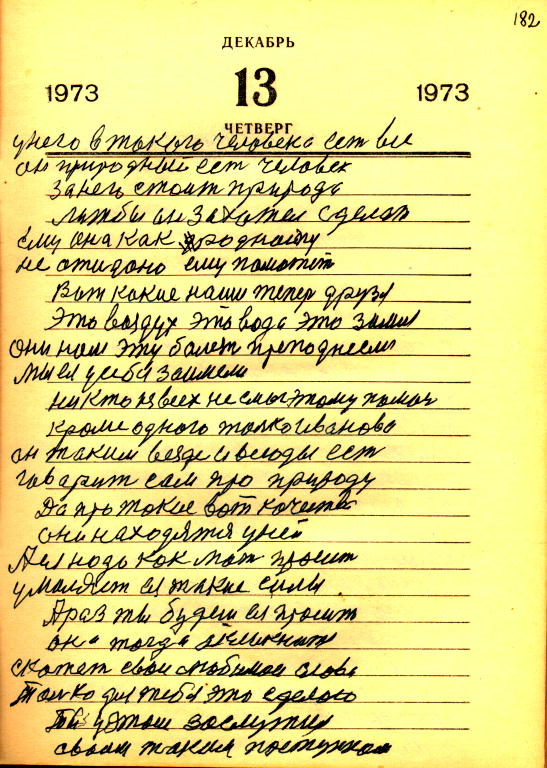 182
ДЕКАБРЬ
1973 13 1973
ЧЕТВЕРГ
унего втакого человека ест все
он природный ест человек
Занего стоит природа
лижбы он захотел сделат
ему она как родному
не ожидано ему поможет
Вот какие наши тепер друзя
Это воздух это вода это земля
они нам эту болезн преподнесли
мы ея усебя заимели
никто из всех не смог этому помоч
кроме одного толко Иванова
он таким везде и всюды ест
говарит сам про природу
Да про такие вот качества
они находятся у ней
А ея надо как мат просит
умолят ея такие силы
А раз ты будеш ея просит
она тогда
скажет свои любимые слова
Толко для тебя это сделаю
Ты уэтом заслужил
своим таким поступком